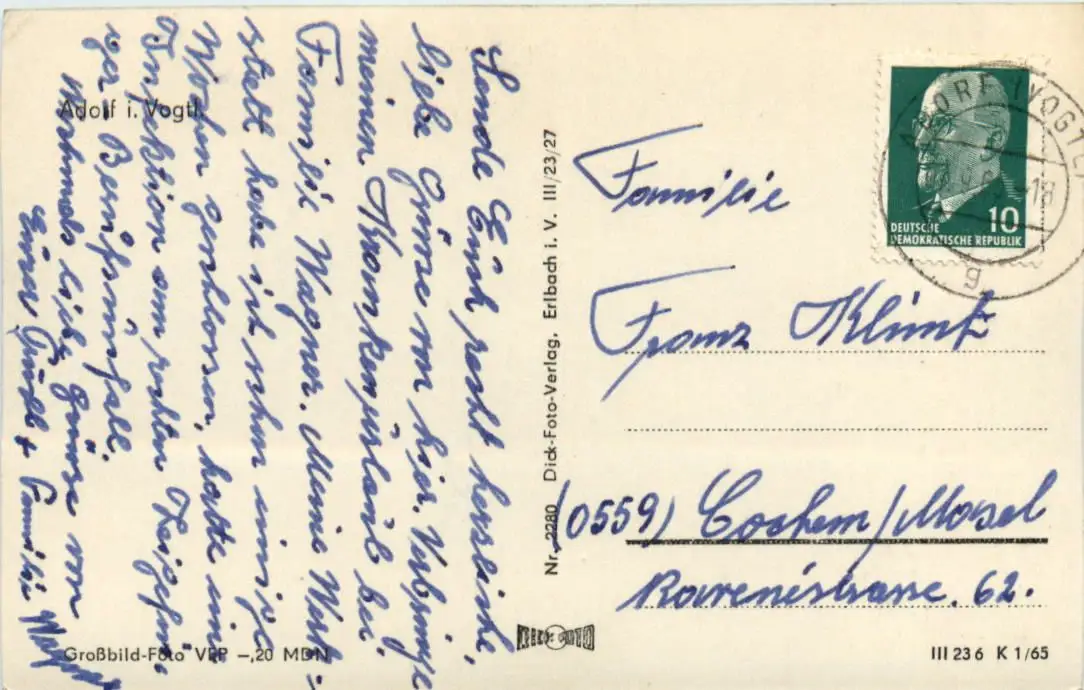 Sende Euch recht herzliche,
liebe Grüße von hier. Verbringe
meinen Krankenurlaub bei
Familie Wagner. Meine Werk-
statt habe ich schon einige
Wochen geschlossen, hatte eine
Infektion am rechten Zeigefin-
ger Berufsunfall.
Nochmals liebe Grüsse von
Eurer & Familie Wagner
Adorf i. Vogtl.
Großbild-Foto VEP –,20 MDN
Nr. 2280 Dick-Foto-Verlag, Erlbach i. V. III/23/27
DEUTSCHE
DEMOKRATISCHE REPUBLIK
10
ADORF (VOGTL)
-18
g
Familie
Franz Klintz
(0559) Cochem/Mosel
Ravenéstrasse. 62.
III 23 6 K 1/65